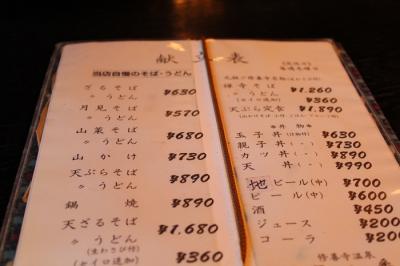 献立表
当店自慢のそば・うどん
ざるそば
〃うどん ¥630
月見そば
〃うどん ¥570
山菜そば
〃うどん ¥680
山かけ ¥730
天ぷらそば
〃うどん ¥890
鍋焼 ¥890
天ざるそば
〃うどん ¥1,680
(生わさび付)
(セイロ追加) ¥360
禅寺そば ¥1,260
(セイロ追加) ¥360
天ぷら定食 ¥1,890
丼物
玉子丼 ¥630
親子丼(〃) ¥730
カツ丼(〃) ¥890
天丼 ¥990
地ビール(中) ¥700
ビール(中) ¥600
酒 ¥450
ジュース ¥200
コーラ ¥200
修善寺温泉